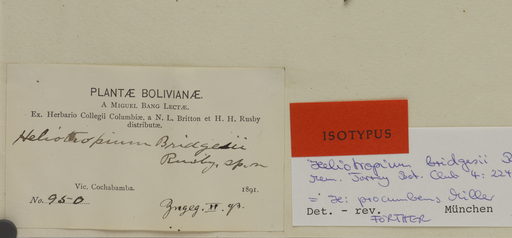 PLANTÆ BOLIVIANÆ.
A MIGUEL BANG LECTÆ.
Ex. Herbario Collegii Columbiæ, a N. L. Britton et H. H. Rusby
distributæ.
Heliotropium Bridgesii
Rusby, sp. n
Vic. Cochabamba.
1891.
No. 950
Zngeg. II. 93.
ISOTYPUS
Heliotropium bridgesii
Mem. Torrey Bot. Club 4: 224
= H. procumbens Miller
Det. - rev. München
FÖRTHER